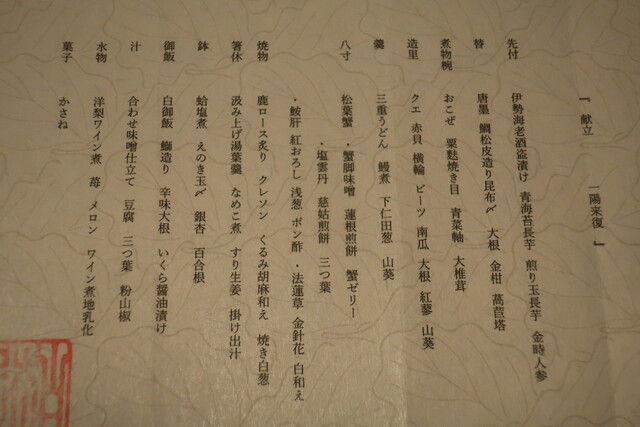 『献立 一陽来復』
先付 伊勢海老酒盗漬け 青海苔長芋 煎り玉長芋 金時人参
替 唐墨 鯛松皮造り昆布〆 大根 金柑 萵苣塔
煮物椀 おこぜ 粟麩焼き目 青菜軸 大椎茸
造里 クエ 赤貝 横輪 ビーツ 南瓜 大根 紅蓼 山葵
羹 三重うどん 鰻煮 下仁田葱 山葵
八寸 松葉蟹 ・蟹脚味噌 蓮根煎餅 蟹ゼリー
・塩雲丹 慈姑煎餅 三つ葉
・鮟肝 紅おろし 浅葱 ポン酢 ・法蓮草 金針花 白和え
焼物 鹿ロース炙り クレソン くるみ胡麻和え 焼き白葱
箸休 汲み上げ湯葉羹 なめこ煮 すり生姜 掛け出汁
鉢 蛤塩煮 えのき玉〆 銀杏 百合根
御飯 白御飯 鰤造り 辛味大根 いくら醤油漬け
汁 合わせ味噌仕立て 豆腐 三つ葉 粉山椒
水物 洋梨ワイン煮 苺 メロン ワイン煮地乳化
菓子 かさね